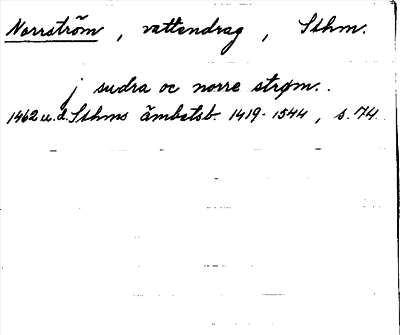 Norrström, vattendrag, Sthm.
j sudra oc norre strøm.
1462 u.d. Sthms ämbetsb. 1419-1544, s. 74